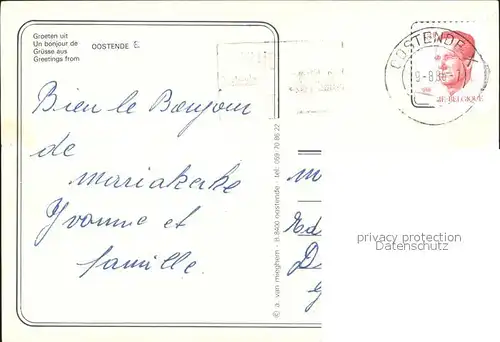 Groeten uit
Un bonjour de
Grüsse aus
Greetings from
OOSTENDE E.
OOSTENDE
BELGIQUE
Bien le Bonjour
de
Mariakerke
Yvonne et
famille.
© a. van mieghem - B 8400 oostende - tel. 059 70 86 22
privacy protection
Datenschutz